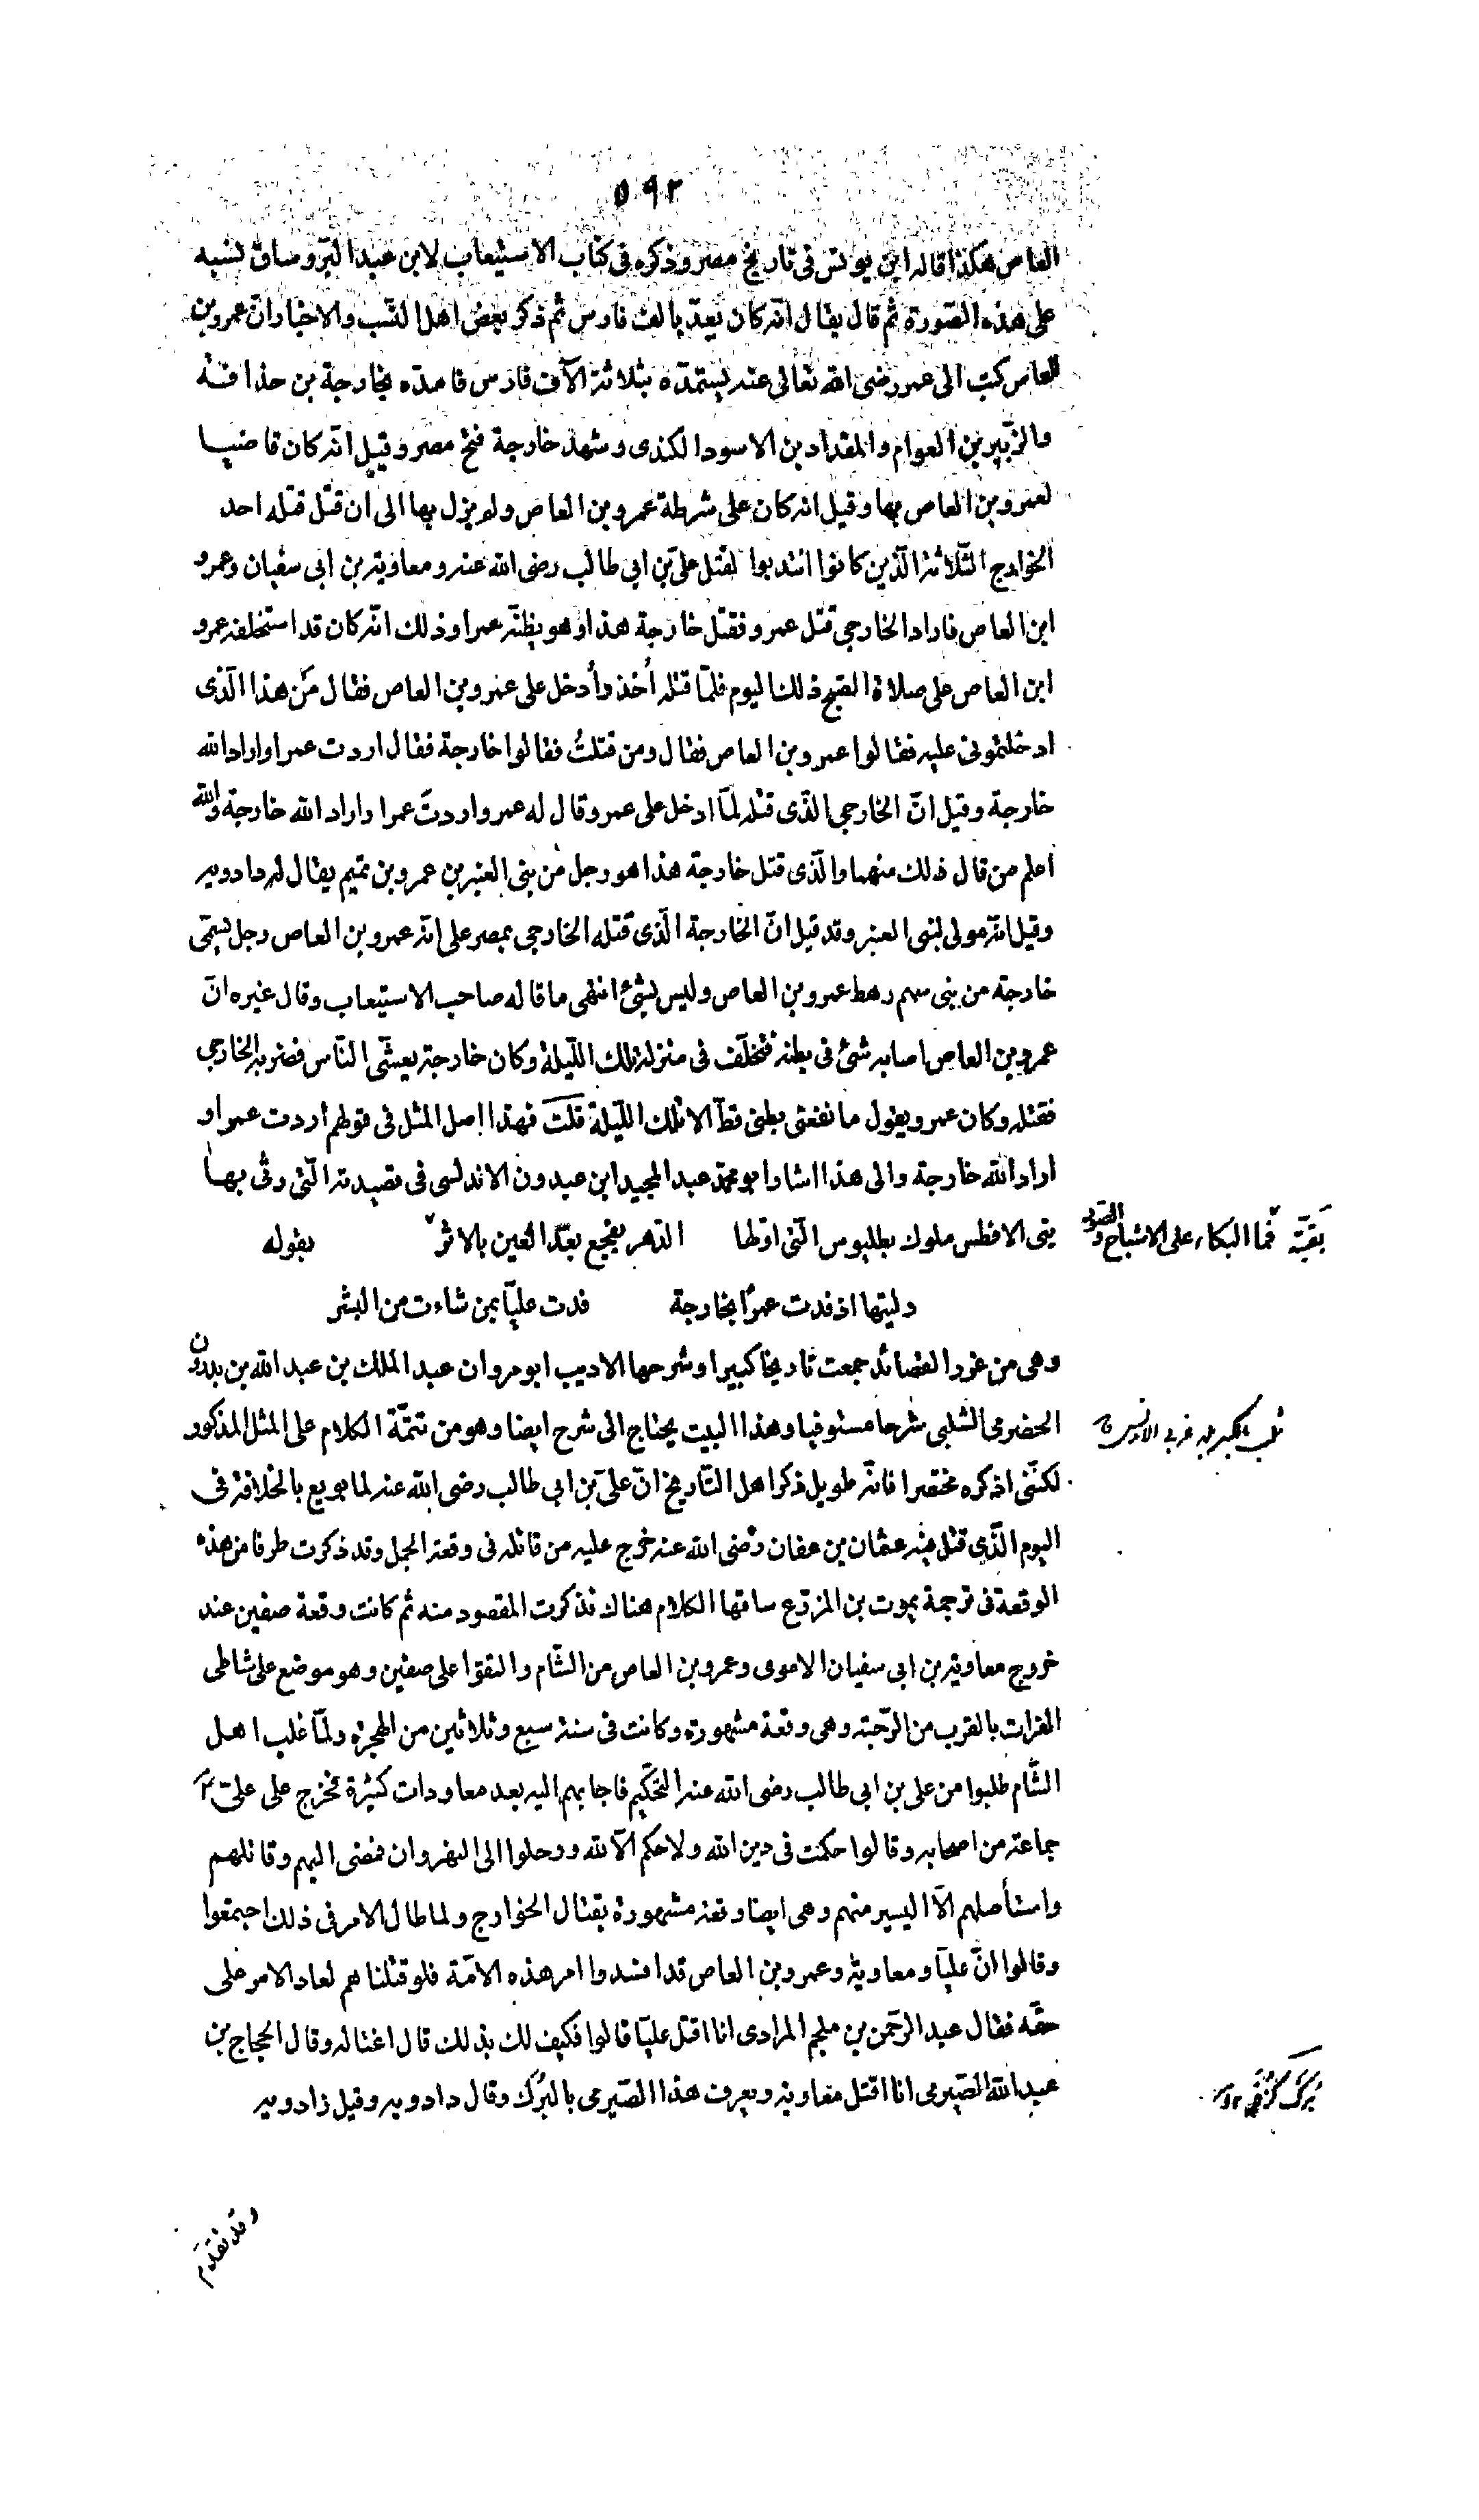 ٥٩٢
العاص هكذا قاله ابن يونس فى تاريخ مصر وذكره فى كتاب الاستيعاب لابن عبد البرّ وساق نسبه
على هذه الصّورة ثم قال يقال انّه كان يعدّ بالف فارس ثم ذكر بعض اهل النّسب والاخبار انّ عمرو بن
العاص كتب الى عمر رضى الله تعالى عنه يستمدّه بثلاثة الآف فارس فامدّه بخارجة بن حذافة
والزّبير بن العوام والمقداد بن الاسود الكندى وشهد خارجة فتح مصر وقيل انّه كان قاضيا
لعمرو بن العاص بها وقيل انه كان على شرطة عمرو بن العاص ولم يزل بها الى ان قتل قتله احد
الخوارج الثّلاثة الّذين كانوا انتدبوا لقتل علىّ بن ابي طالب رضى الله عنه ومعاوية بن ابى سفيان وعمرو
ابن العاص فاراد الخارجى قتل عمرو فقتل خارجة هذا وهو يظنّه عمرا وذلك انّه كان قد استخلفه عمرو
ابن العاص على صلاة الصّبح ذلك اليوم فلمّا قتله أُخذ وأُدخل على عمرو بن العاص فقال مَن هذا الّذى
ادخلتمونى عليه فقالوا عمرو بن العاص فقال ومن قتلتُ فقالوا خارجة فقال اردت عمرا واراد الله
خارجة وقيل انّ الخارجى الّذى قتله لمّا ادخل على عمرو قال له عمرو اردتَ عمرا واراد الله خارجة والله
اعلم من قال ذلك منهما والّذى قتل خارجة هذا هو رجل من بنى العنبر بن عمرو بن تميم يقال له دادويه
وقيل انّه مولى لبنى العنبر وقد قيل انّ الخارجة الّذى قتله الخارجى بمصر على انّه عمرو بن العاص رجل يسمّى
خارجة من بنى سهم رهط عمرو بن العاص وليس بشئ انتهى ما قاله صاحب الاستيعاب وقال غيره انّ
عمرو بن العاص اصابه شئ فى بطنه فتخلّف فى منزله تلك اللّيلة وكان خارجة يعشّى النّاس فضربه الخارجى
فقتله وكان عمرو يقول ما نفعنى بطنى قطّ الا تلك اللّيلة قلت فهذا اصل المثل فى قولهم اردت عمرا و
اراد الله خارجة والى هذا اشار ابو محمّد عبد المجيد ابن عبدون الاندلسى فى قصيدته الّتى رثى بها
بنى الافطس ملوك بطليوس الّتى اوّلها الدّهر يفجع بعد العين بالاثر بقوله
بقيّته فما البكاء على الاشباح والصّور
وليتها اذ فدت عمرًا بخارجة فدت عليّا بمن شاءت من البشر
وهى من غرر القصائد جمعت تاريخا كبيرا وشرحها الاديب ابو مروان عبد الملك بن عبد الله بن بدرون
الحضرمى الشلبى شرحا مستوفيا وهذا البيت يحتاج الى شرح ايضا وهو من تتمّة الكلام على المثل المذكور
لكنّنى اذكره مختصرا فانّه طويل ذكر اهل التّاريخ انّ علىّ بن ابي طالب رضى الله عنه لما بويع بالخلافة فى
اليوم الّذى قتل فيه عثمان بن عفان رضى الله عنه خرج عليه من قاتله فى وقعة الجمل وقد ذكرت طرفا من هذه
الوقعة فى ترجمة يموت بن المزرّع ساقها الكلام هناك فذكرت المقصود منه ثم كانت وقعة صفين عند
خروج معاوية بن ابى سفيان الاموى وعمرو بن العاص من الشّام والتقوا على صفين وهو موضع على شاطى
الفرات بالقرب من الرّحبة وهى وقعة مشهورة وكانت فى سنة سبع وثلاثين من الهجرة ولمّا غلب اهل
الشّام طلبوا من على بن ابى طالب رضى الله عنه التّحكيم فاجابهم اليه بعد معاودات كثيرة فخرج على علىّ
جماعة من اصحابه وقالوا حكمت فى دين الله ولا حكم الّا لله ورحلوا الى النهروان فمضى اليهم وقاتلهم
واستأصلهم الّا اليسير منهم وهى ايضا وقعة مشهورة بقتال الخوارج ولما طال الامر فى ذلك اجتمعوا
وقالوا انّ عليّا ومعاوية وعمرو بن العاص قد افسدوا امر هذه الامّة فلو قتلناهم لعاد الامر على
حقّه فقال عبد الرّحمن بن ملجم المرادى انا اقتل عليّا قالوا فكيف لك بذلك قال اغتاله وقال الحجاج بن
عبد الله الصّيرمى انا اقتل معاوية ويعرف هذا الصّيرمى بالبُرَك وقال دادويه وقيل زادويه
وقد تقدّم